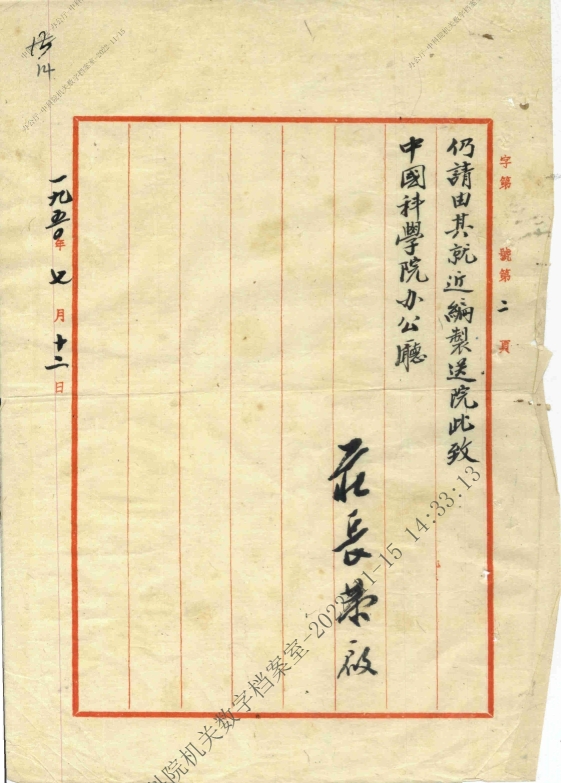 字第 號第二頁
仍請由其就近編製送院此致
中國科學院办公廳
莊長恭啟
一九五〇年七月十二日
14
院机关数字档案室-2022-11-15 14:33:13